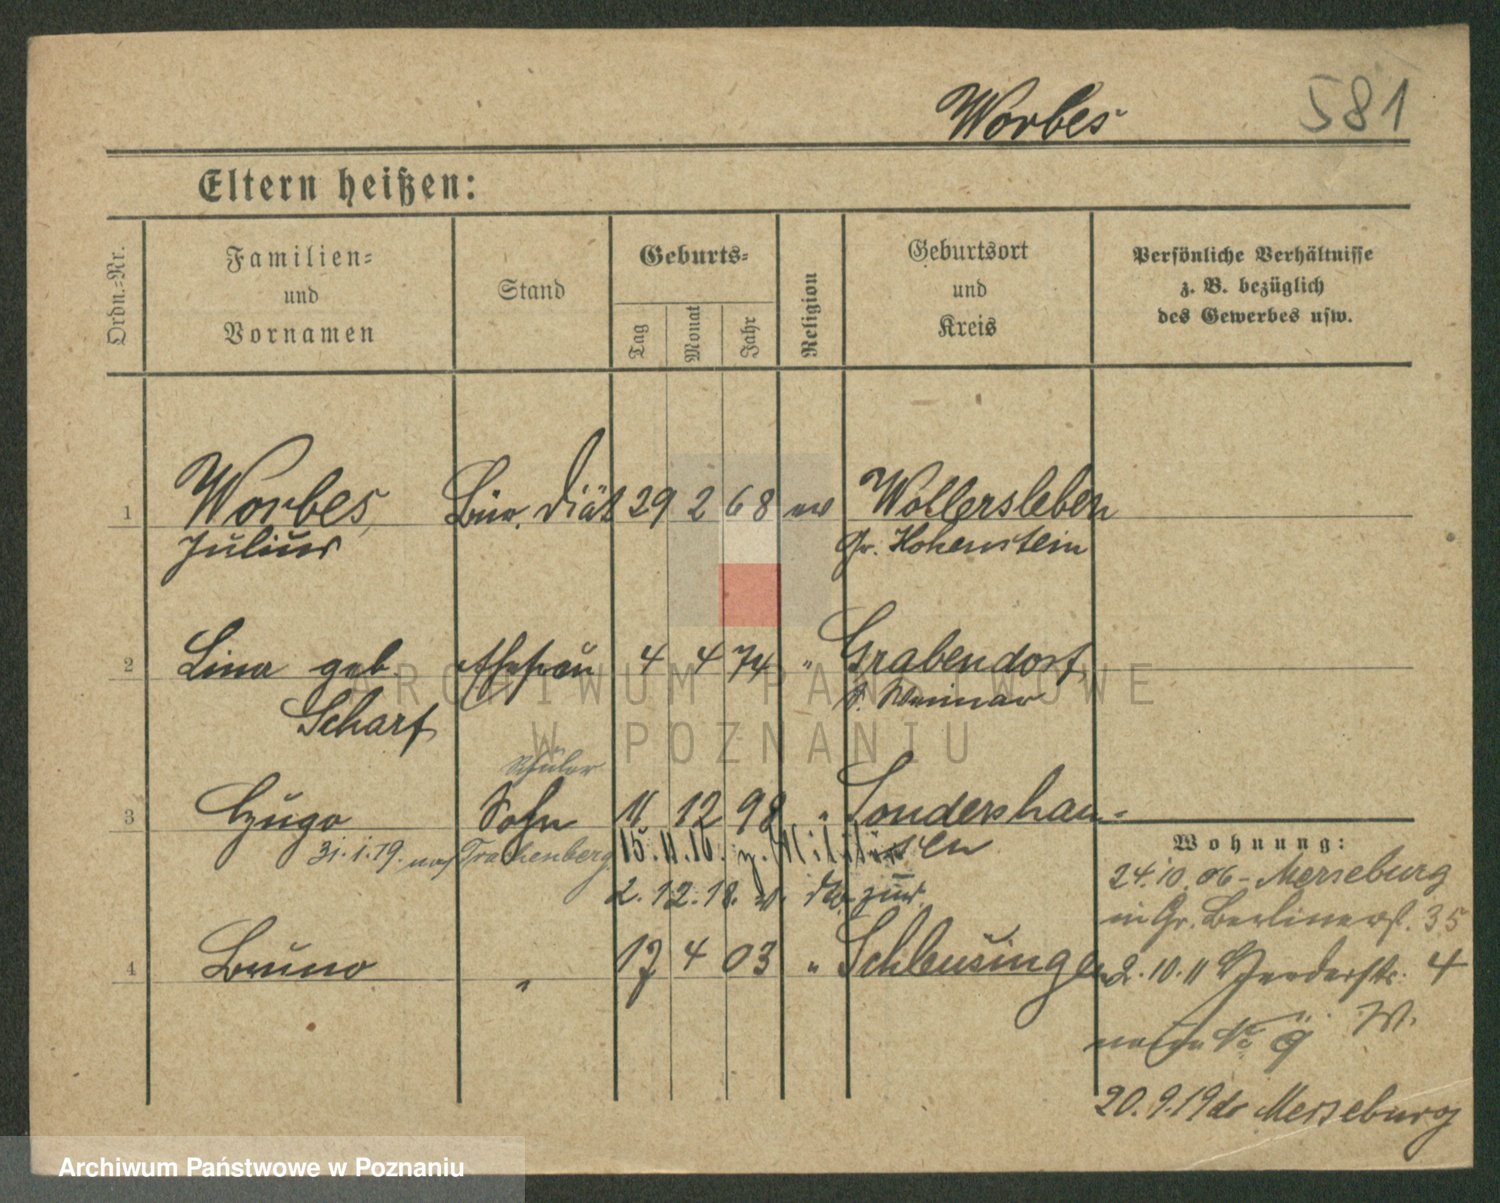 Worbes
581
Eltern heißen:
Ordn.=Nr.
Familien=
und
Vornamen
Stand
Geburts=
Tag
Monat
Jahr
Religion
Geburtsort
und
Kreis
Persönliche Verhältnisse
z. B. bezüglich
des Gewerbes usw.
1 Worbes, Bür. Diät 29 2 68 ev Wollersleben
Julius Gr. Hohenstein
2 Lina geb. Ehefrau 4 4 74 " Grabendorf,
Scharf Weimar
Schüler
3 Hugo Sohn 11 12 98 " Sondershau-
sen
31.1.19. nach Trachenberg 15.11.16. z. Militär
2.12.18. v. zur.
4 Bruno " 17 4 03 " Schleusingen
Wohnung:
24.10.06 - Merseburg
in Gr. Berlinerst. 35
2.10.11 4
W.
20.9.19 Merseburg
ARCHIWUM PAŃSTWOWE
W POZNANIU
Archiwum Państwowe w Poznaniu